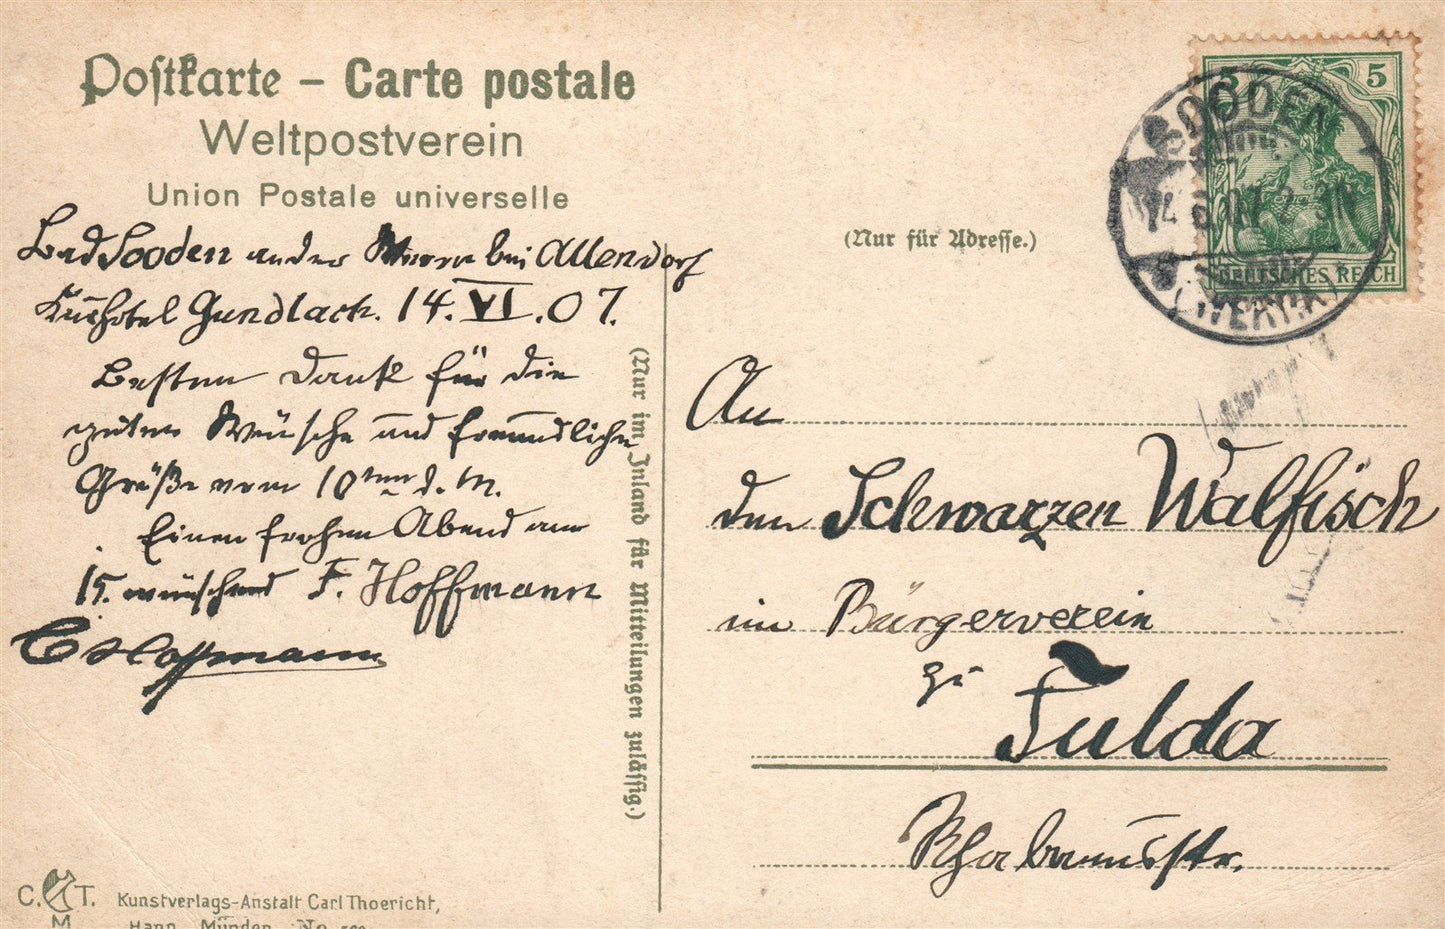 Postkarte – Carte postale
Weltpostverein
Union Postale universelle
(Nur für Adresse.)
5 5
DEUTSCHES REICH
SOODEN
(WERRA)
Bad Sooden an der Werra bei Allendorf
Kurhotel Gundlach. 14. VI. 07.
Besten Dank für die
guten Wünsche und freundlichen
Grüße vom 10ten d. M.
Einen frohen Abend am
15. wünschend F. Hoffmann
C Hoffmann
(Nur im Inland für Mitteilungen zulässig.)
An
den Schwarzen Walfisch
im Bürgerverein
zu
Fulda
Rhabanusstr.
C. T.
M
Kunstverlags-Anstalt Carl Thoericht,
Hann. Münden. No